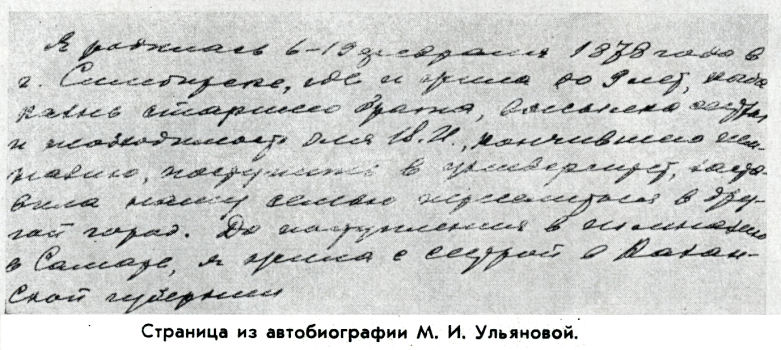 Я родилась 6-19 февраля 1878 года в
г. Симбирске, где и жила до 9 лет, когда
казнь старшего брата, высылка сестры
и необходимость для В. И., кончившего гим-
назию, поступить в университет, заста-
вила нашу семью переселиться в дру-
гой город. До поступления в гимназию
в Самаре, я жила с сестрой в Казан-
ской губернии
Страница из автобиографии М. И. Ульяновой.